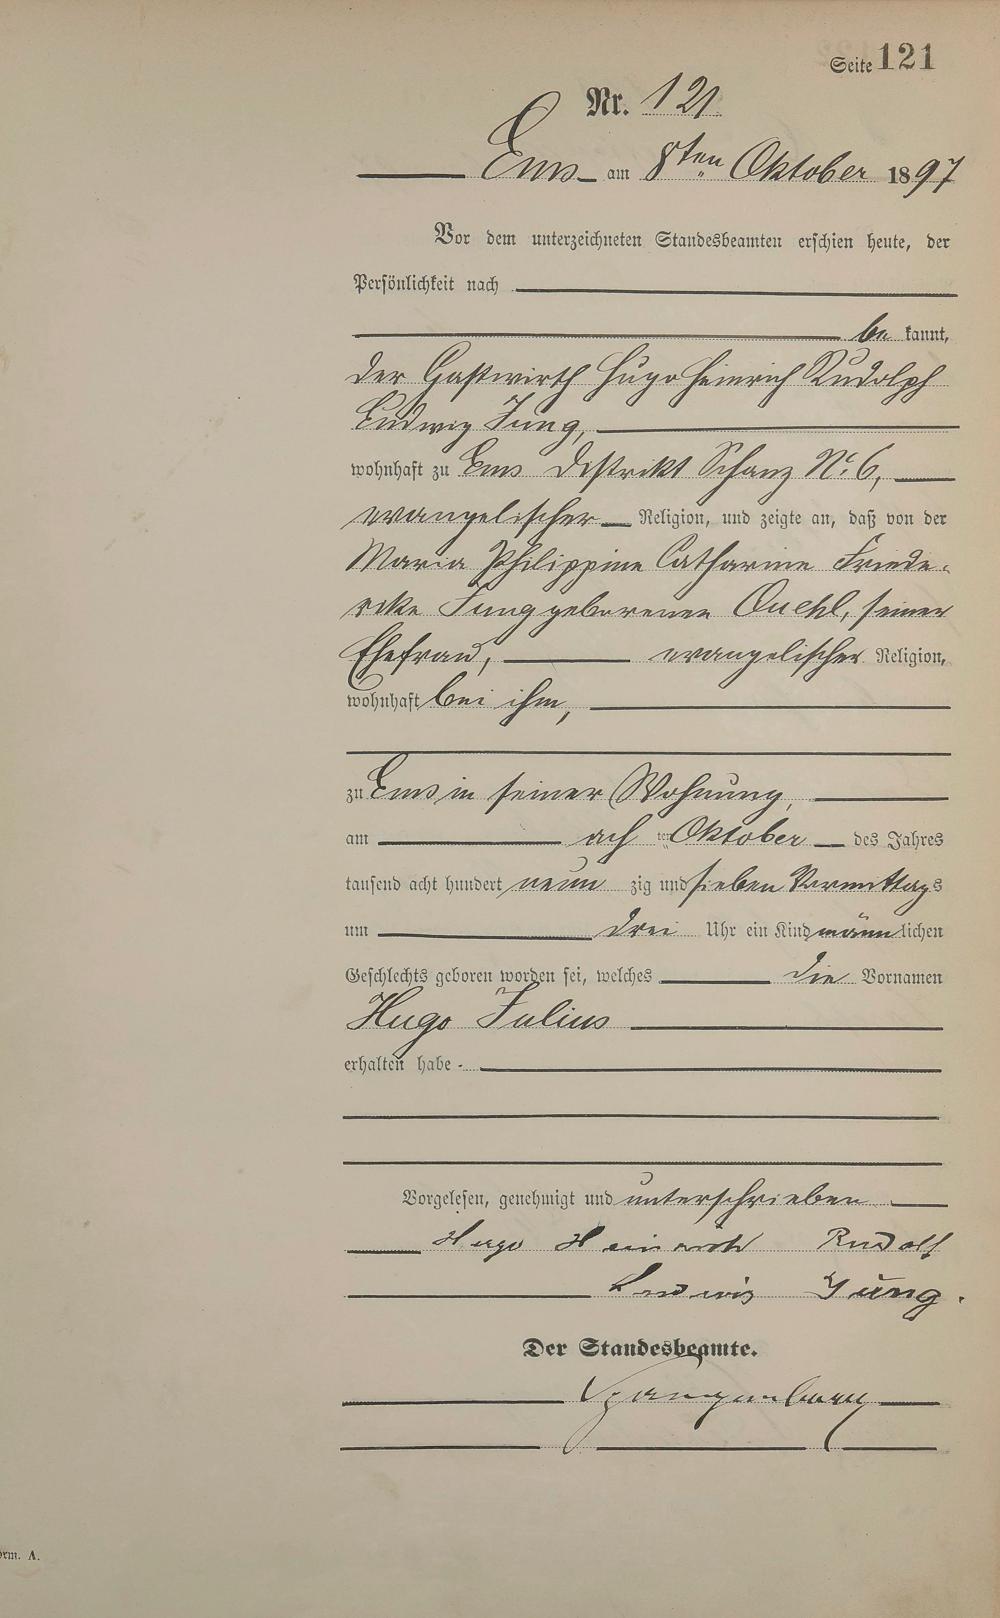 Seite 121
Nr. 121
Ems am 8ten Oktober 1897
Vor dem unterzeichneten Standesbeamten erschien heute, der
Persönlichkeit nach
be kannt,
der Gastwirth Hugo Heinrich Rudolph
Ludwig Jung,
wohnhaft zu Ems Distrikt Schanz No. 6,
evangelischer Religion, und zeigte an, daß von der
Maria Philippine Catharine Friede-
rike Jung geborenen Quehl, seiner
Ehefrau, evangelischer Religion,
wohnhaft bei ihm,
zu Ems in seiner Wohnung,
am ach ten Oktober des Jahres
tausend acht hundert neun zig und sieben Vormittags
um drei Uhr ein Kind männlichen
Geschlechts geboren worden sei, welches die Vornamen
Hugo Julius
erhalten habe.
Vorgelesen, genehmigt und unterschrieben
Hugo Heinrich Rudolf
Ludwig Jung.
Der Standesbeamte.
Spangenberg
orm. A.